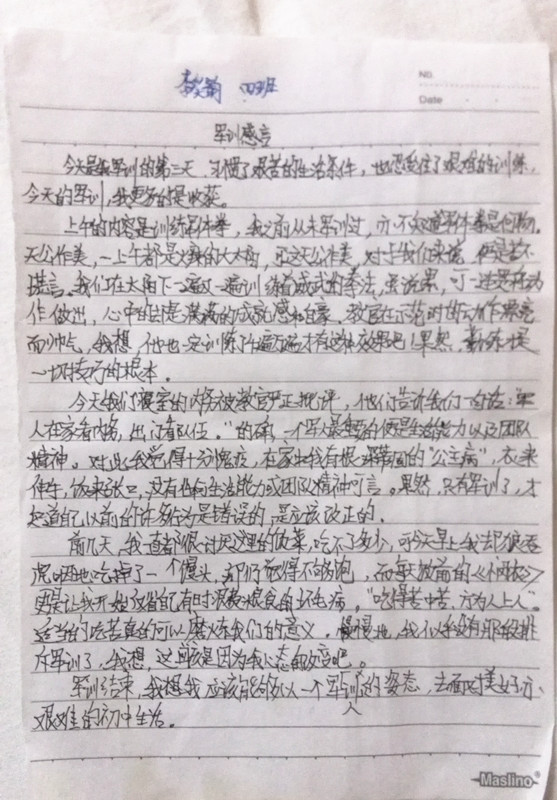 No.
四班
Date
军训感言
今天是我军训的第三天,习惯了艰苦的生活条件,也忍受住了艰难的训练,
今天的军训,我更多的是收获。
上午的内容是训练军体拳,我之前从未军训过,亦不知道军体拳是何物。
天公作美,一上午都是火辣的大太阳,这天公作美,对于我们来说,便是苦不
堪言。我们在太阳下一遍又一遍训练着威武的拳法,虽说累,可一连串动
作做出,心中的却是满满的成就感和自豪。教官在示范时的动作漂亮
而帅气,我想,他也一定训练了千遍万遍才有这种效果吧!果然,勤练才是
一切技巧的根本。
今天我们寝室的内务被教官严正批评,他们告诉我们一句话:"军
人在家看内务,出门看队伍。"的确,一个军人最重要的便是生活能力以及团队
精神。对此我觉得十分愧疚,在家中我有很深蒂固的"公主病",衣来
伸手,饭来张口,没有任何生活能力或团队精神可言。果然,只有军训了,才
知道自己以前的许多行为是错误的,是应该改正的。
前几天,我一直都很讨厌这里的饭菜,吃不了多少,可今天早上我却狼吞
虎咽地吃掉了一个馒头,却仍觉得不够饱,而每天放前的《
更是让我开始反省自己有时浪费粮食的坏毛病,"吃得苦中苦,方为人上人"。
适当的吃苦真的可以磨练我们的意义。慢慢地,我似乎没有那般排
斥军训了,我想,这应该是因为我心态的改变吧。
军训结束,我想我应该能够以一个军人的姿态,去面对美好亦
艰难的初中生活。
Maslino®